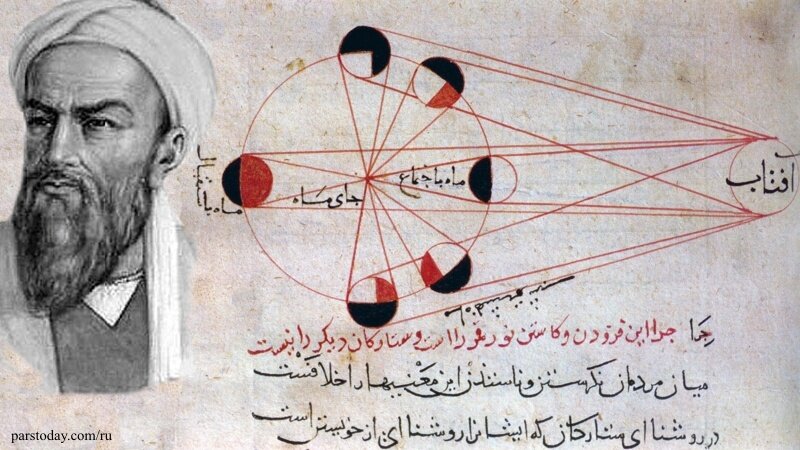 افتاب
ماه باجتماع
جای ماه
ماه با
چرا این فزودن و کاستن نور قمر را است و ستارکان دیکر را نیست
میان مردمان نکرستن و ناسندن این معنیها راخلافست
در روشنا ای ستارکان که ایشانرا روشنا ای از خویشتن است
parstoday.com/ru